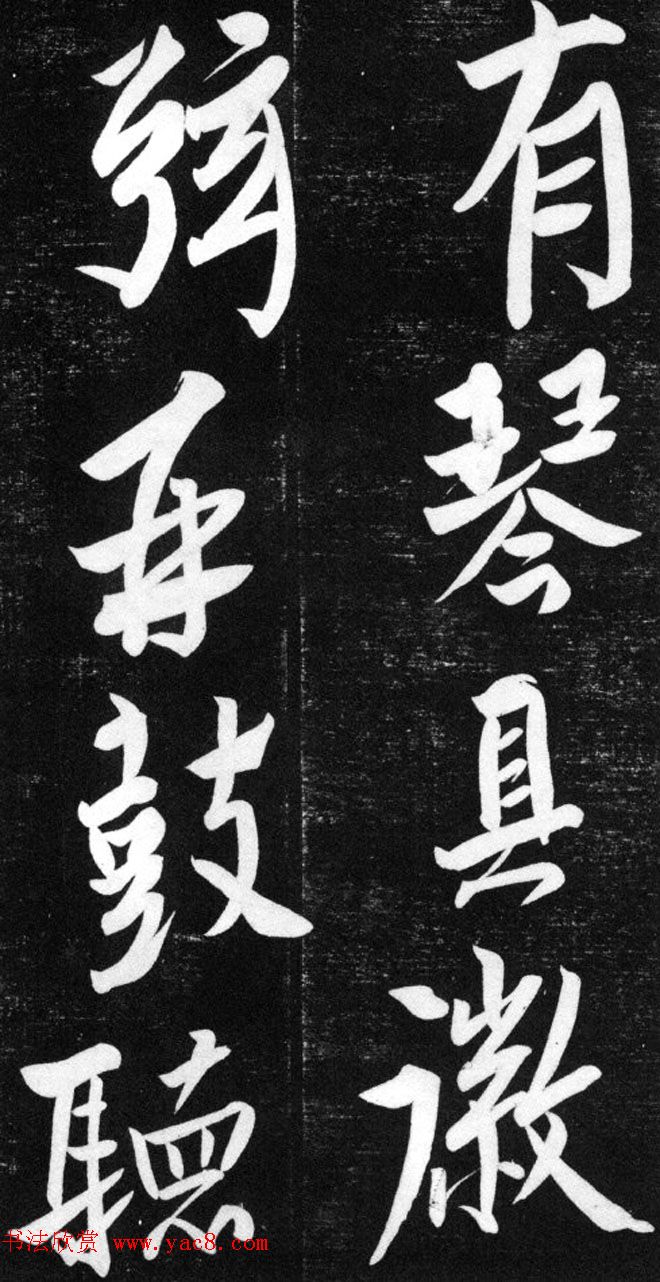 有琴具徽
弦再鼓聽
书法欣赏 www.yac8.com